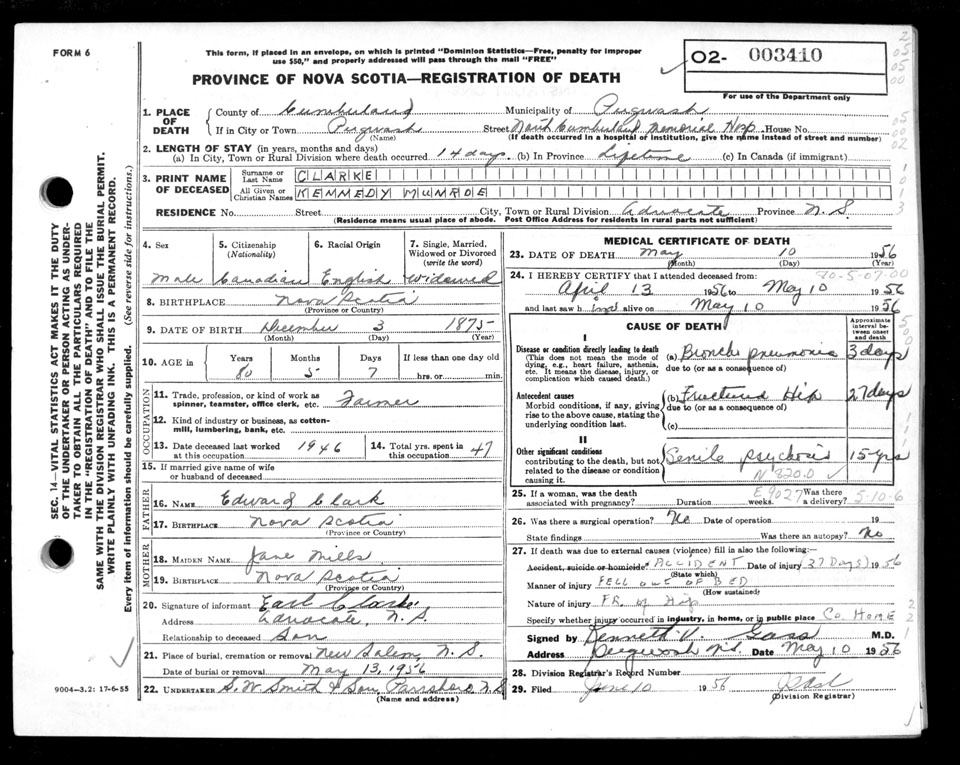 FORM 6
This form, if placed in an envelope, on which is printed "Dominion Statistics—Free, penalty for improper
use $50," and properly addressed will pass through the mail "FREE"
PROVINCE OF NOVA SCOTIA—REGISTRATION OF DEATH
02- 003410
For use of the Department only
SEC. 14—VITAL STATISTICS ACT MAKES IT THE DUTY
OF THE UNDERTAKER OR PERSON ACTING AS UNDER-
TAKER TO OBTAIN ALL THE PARTICULARS REQUIRED
IN THE "REGISTRATION OF DEATH" AND TO FILE THE
SAME WITH THE DIVISION REGISTRAR WHO SHALL ISSUE THE BURIAL PERMIT.
WRITE PLAINLY WITH UNFADING INK. THIS IS A PERMANENT RECORD.
Every item of information should be carefully supplied. (See reverse side for instructions.)
1. PLACE OF DEATH
County of Cumberland Municipality of Pugwash
If in City or Town Pugwash Street North Cumberland Memorial Hosp House No.
(Name) (If death occurred in a hospital or institution, give the name instead of street and number)
2. LENGTH OF STAY (in years, months and days)
(a) In City, Town or Rural Division where death occurred 14 days (b) In Province Lifetime (c) In Canada (if immigrant)
3. PRINT NAME OF DECEASED
Surname or Last Name CLARKE
All Given or Christian Names KENNEDY MUNROE
RESIDENCE No. Street City, Town or Rural Division Advocate Province N.S.
(Residence means usual place of abode. Post Office Address for residents in rural parts not sufficient)
4. Sex 5. Citizenship (Nationality) 6. Racial Origin 7. Single, Married, Widowed or Divorced (write the word)
Male Canadian English Widowed
8. BIRTHPLACE Nova Scotia
(Province or Country)
9. DATE OF BIRTH December 3 1875
(Month) (Day) (Year)
10. AGE in Years Months Days If less than one day old
80 5 7 hrs. or min.
OCCUPATION
11. Trade, profession, or kind of work as spinner, teamster, office clerk, etc. Farmer
12. Kind of industry or business, as cotton-mill, lumbering, bank, etc.
13. Date deceased last worked at this occupation 1946 14. Total yrs. spent in this occupation 47
15. If married give name of wife or husband of deceased
FATHER
16. NAME Edward Clark
17. BIRTHPLACE Nova Scotia
(Province or Country)
MOTHER
18. MAIDEN NAME Jane Mills
19. BIRTHPLACE Nova Scotia
(Province or Country)
20. Signature of informant Earl Clarke
Address Advocate, N.S.
Relationship to deceased Son
21. Place of burial, cremation or removal New Salem, N.S.
Date of burial or removal May 13, 1956
22. UNDERTAKER S.W. Smith & Son Parrsboro N.S
(Name and address)
9004—3.2: 17-6-55
MEDICAL CERTIFICATE OF DEATH
23. DATE OF DEATH May 10 1956
(Month) (Day) (Year)
24. I HEREBY CERTIFY that I attended deceased from: 80-5-07-00
April 13 1956 to May 10 1956
and last saw him alive on May 10 1956
CAUSE OF DEATH
Approximate interval between onset and death
I
Disease or condition directly leading to death (a) Broncho pneumonia 3 days
(This does not mean the mode of dying, e.g., heart failure, asthenia, etc. It means the disease, injury, or complication which caused death.)
due to (or as a consequence of)
Antecedent causes (b) Fractured Hip 27 days
Morbid conditions, if any, giving rise to the above cause, stating the underlying condition last.
due to (or as a consequence of)
(c)
II
Other significant conditions Senile psychosis 15 yrs
contributing to the death, but not related to the disease or condition causing it.
N 820.0
25. If a woman, was the death associated with pregnancy? Duration weeks. Was there a delivery?
E9027 5-10-6
26. Was there a surgical operation? No Date of operation 19
State findings Was there an autopsy? No
27. If death was due to external causes (violence) fill in also the following:
Accident, suicide or homicide ACCIDENT Date of injury (27 DAYS) 1956
(State which)
Manner of injury FELL OUT OF BED
(How sustained)
Nature of injury FR. of Hip
Specify whether injury occurred in industry, in home, or in public place Co. HOME
Signed by Kenneth V. Gass M.D.
Address Pugwash N.S. Date May 10 1956
28. Division Registrar's Record Number
29. Filed June 10 1956
(Division Registrar)